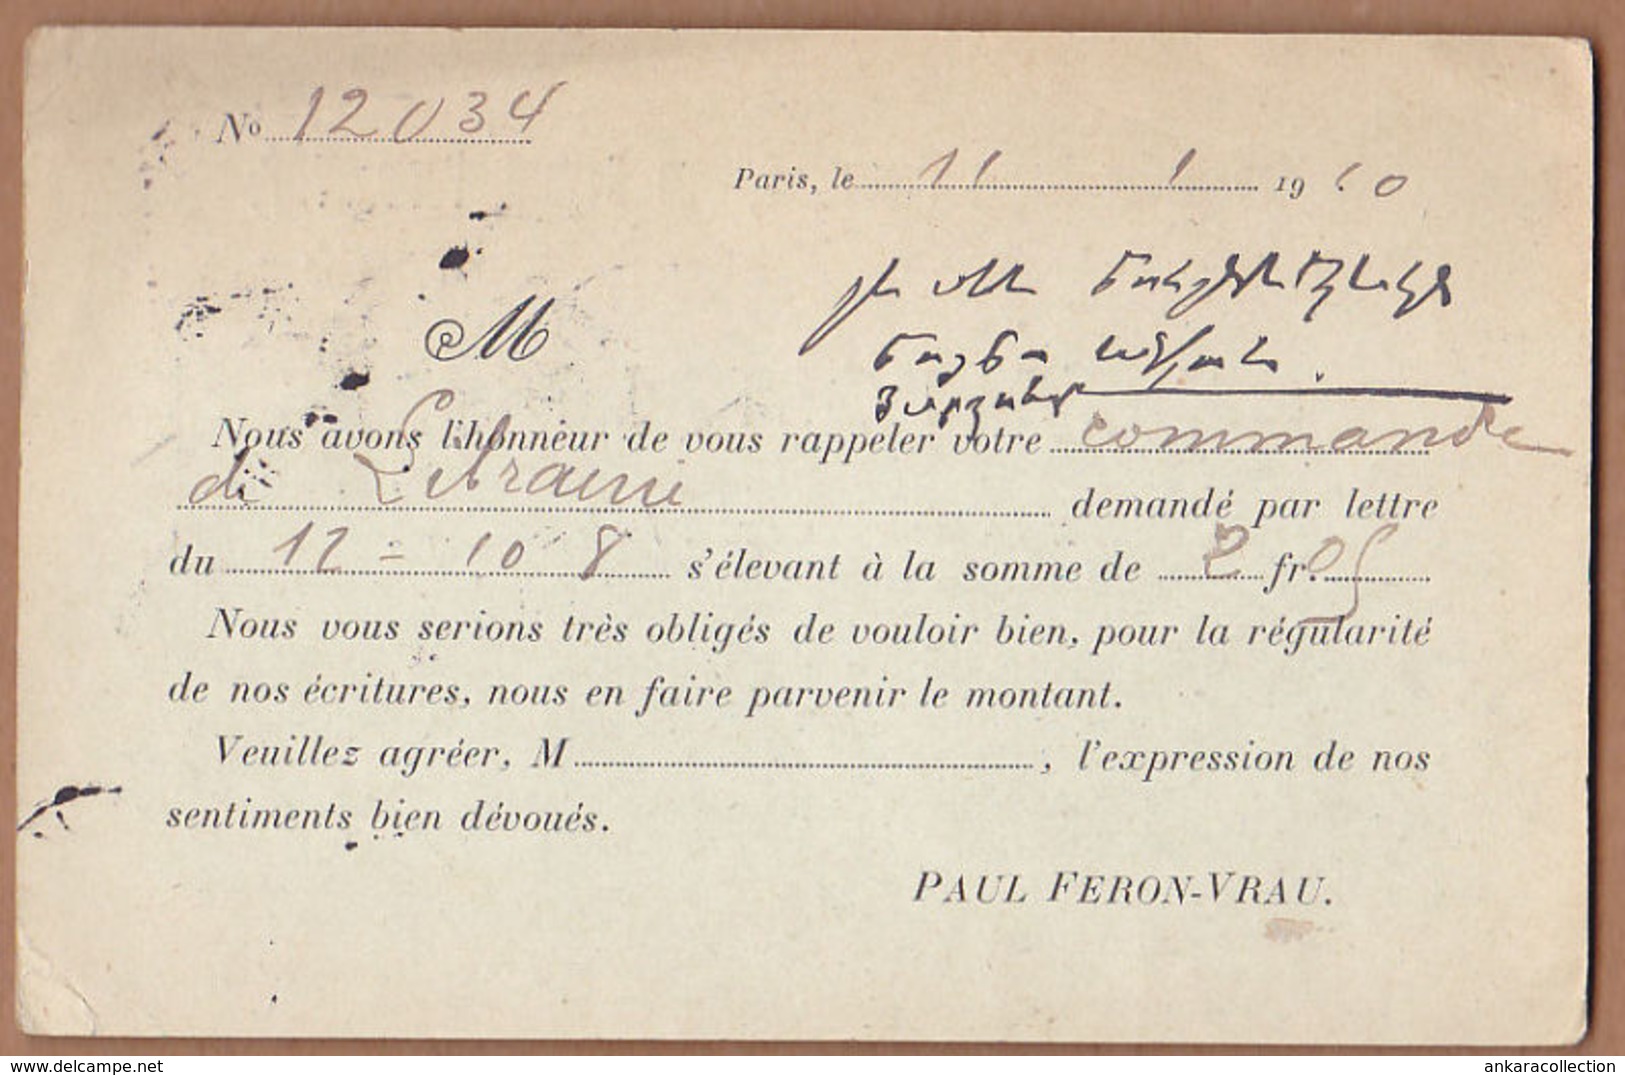 No 12034
Paris, le 11 1 1910
M
Nous avons l'honneur de vous rappeler votre commande
de Librairie demandé par lettre
du 12 = 10 8 s'élevant à la somme de 2 fr. 05
Nous vous serions très obligés de vouloir bien, pour la régularité
de nos écritures, nous en faire parvenir le montant.
Veuillez agréer, M , l'expression de nos
sentiments bien dévoués.
PAUL FERON-VRAU.
delcampe.net
ankaracollection